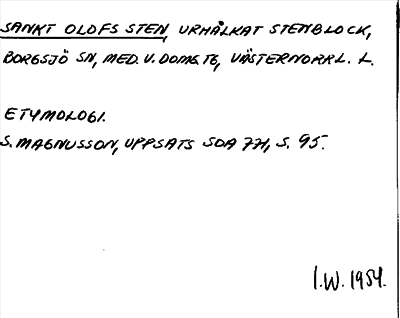 SANKT OLOFS STEN, URHÅLKAT STENBLOCK,
BORGSJÖ SN, MED. V. DOMS. TG, VÄSTERNORRL. L.
ETYMOLOGI.
S. MAGNUSSON, UPPSATS SOA 771, S. 95.
I.W. 1954.